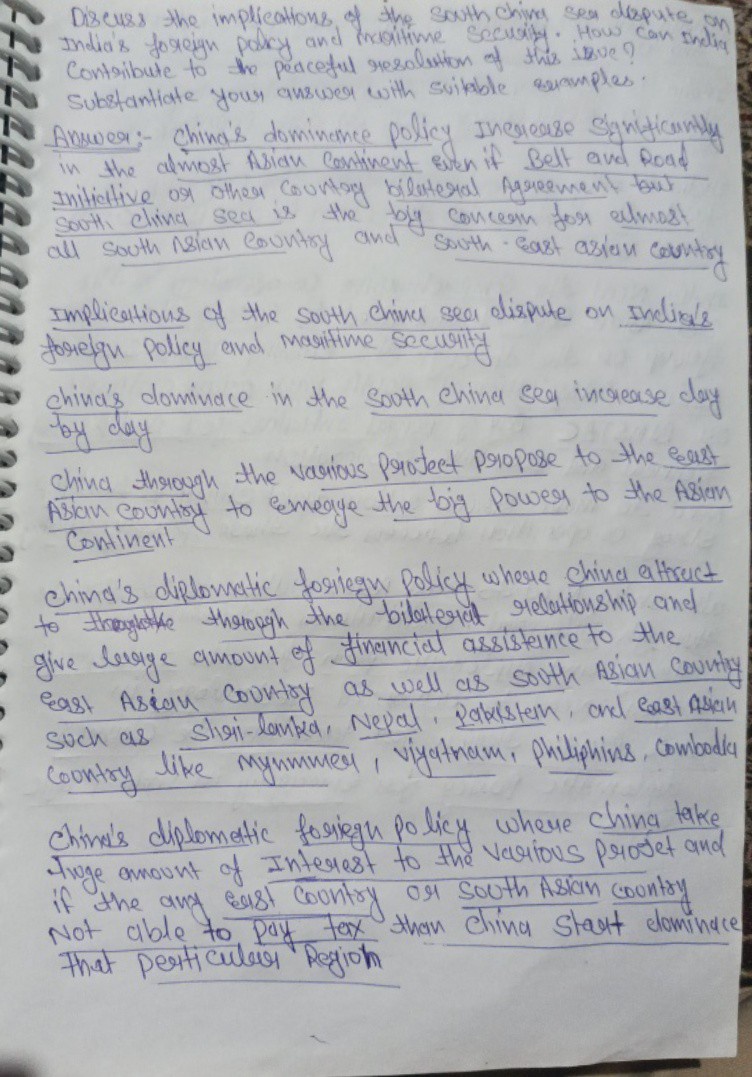 Discuss the implications of the south china sea dispute on
India's foreign policy and maritime security. How can India
Contribute to the peaceful resolution of this issue?
Substantiate your answer with suitable examples.
Answer:- China's dominance policy Increase Significantly
in the almost Asian Continent even if Belt and Road
Initiative or other Country bilateral Agreement but
South China sea is the big concern for almost
all South Asian Country and South-East asian country
Implications of the south china sea dispute on India's
foreign policy and maritime security
china's dominace in the south china sea increase day
by day
China through the various project propose to the East
Asian Country to emerge the big power to the Asian
Continent
China's diplomatic foriegn policy where china attract
to through the bilateral relationship and
give large amount of financial assistance to the
East Asian Country as well as south Asian Country
such as Shri-lanka, Nepal, Pakistan, and East Asian
Country like Mynmmer, Viyatnam, Philiphins, Combodia
China's diplomatic foriegn policy where china take
huge amount of Interest to the various projet and
if the any east Country or South Asian Country
Not able to pay tax than China Start dominace
That perticular Region